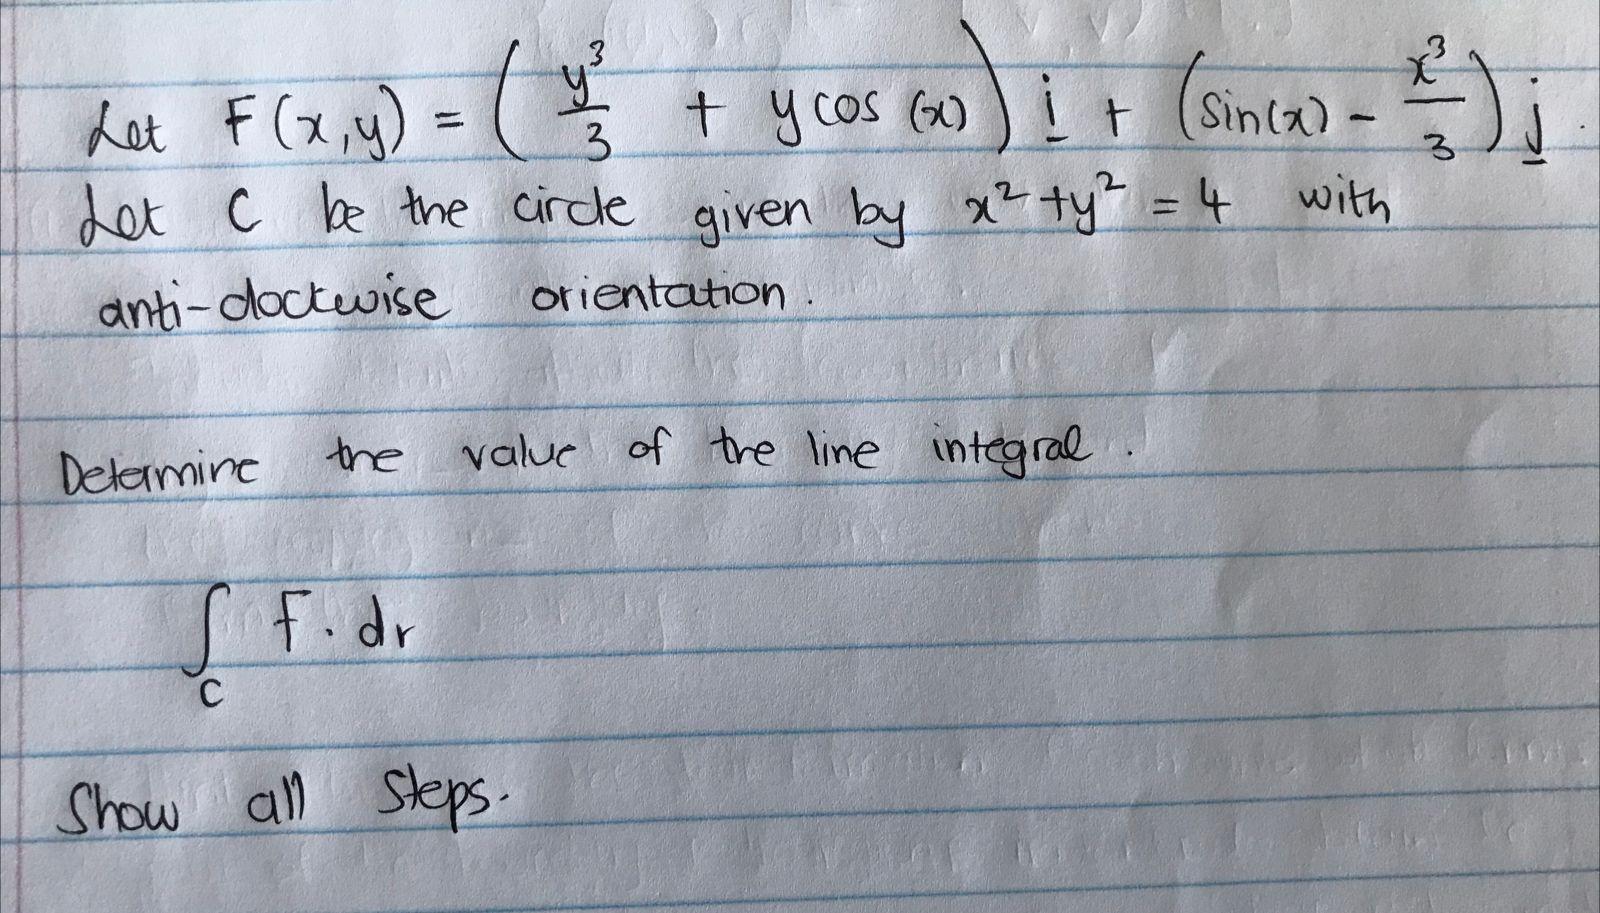 Let F(x,y) = (y³/3 + y cos (x)) i + (sin(x) - x³/3) j.
Let C be the circle given by x² + y² = 4 with
anti-clockwise orientation.
Determine the value of the line integral.
∫_C F. dr
Show all steps.